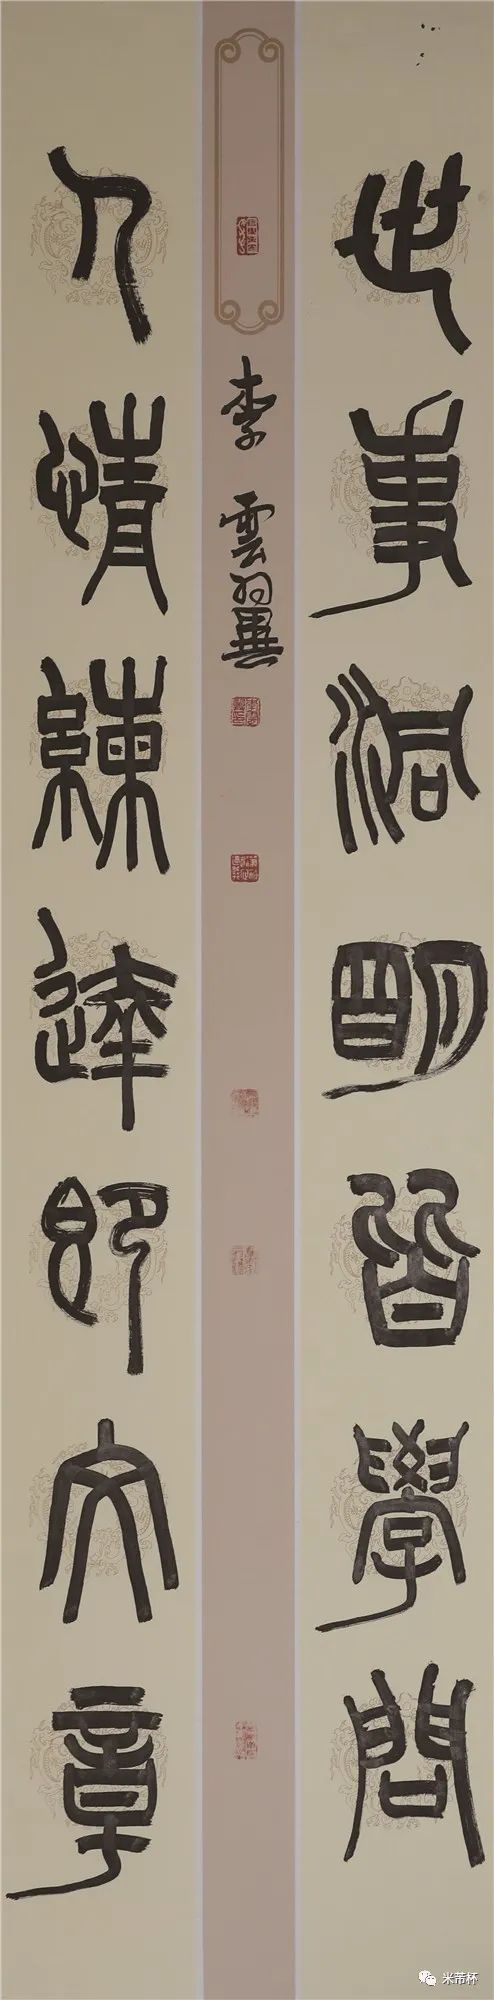 世事洞明皆學問
人情練達即文章
李雲翼
米芾杯